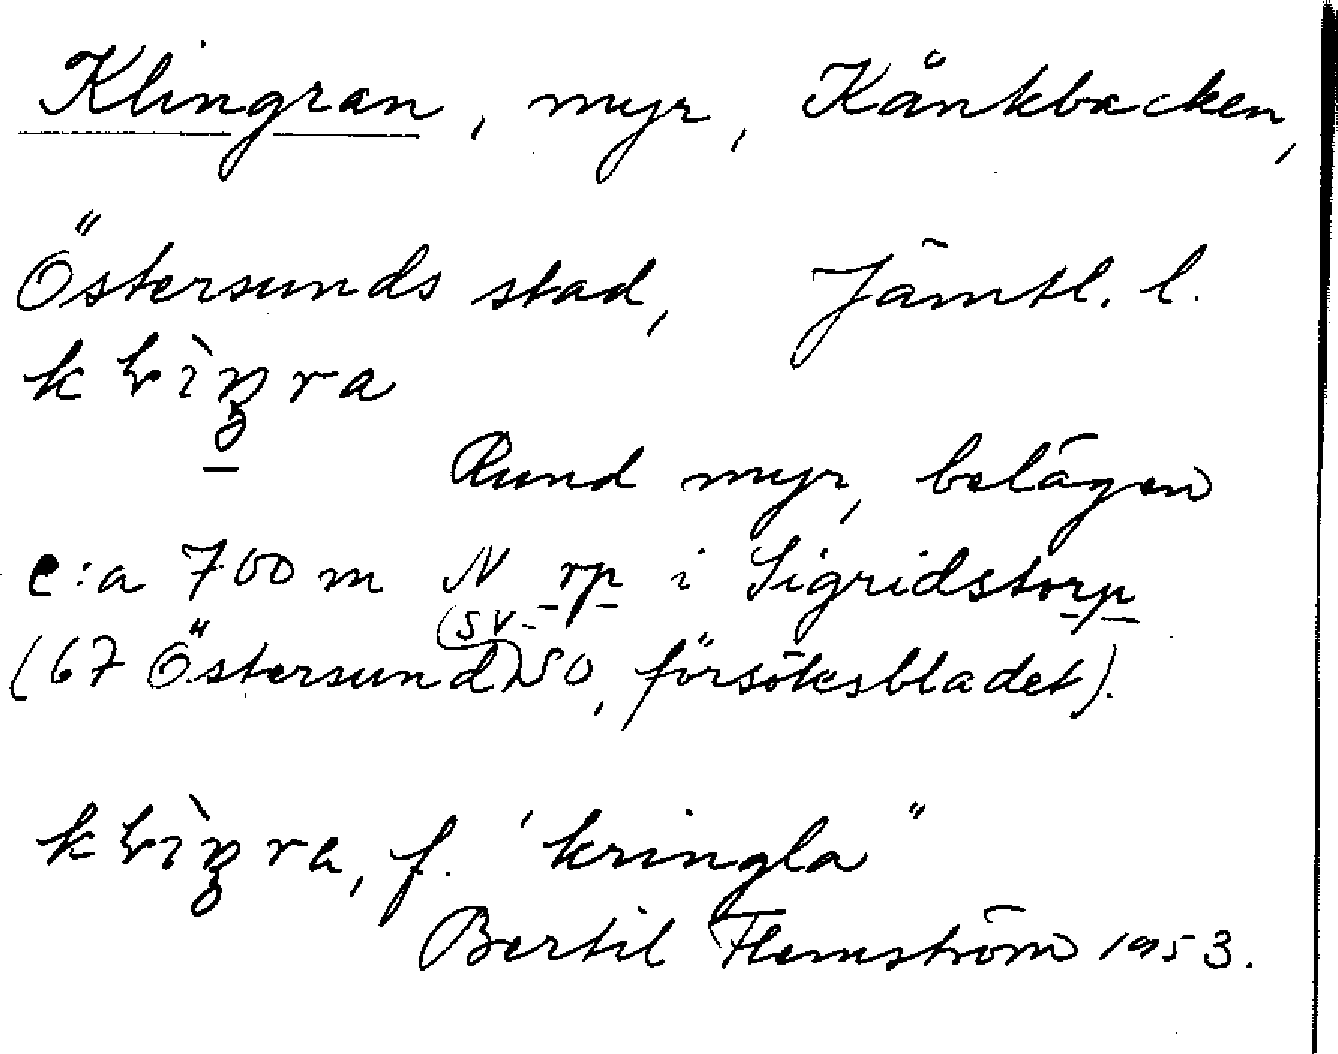 Klingran, myr, Kånkbacken,
Östersunds stad, Jämtl. l.
Rund myr, belägen
c:a 700 m N rp i Sigridstorp
(sv.
(67 Östersund) SO, försöksbladet).
f. "kringla"
Bertil Flemström 1953.